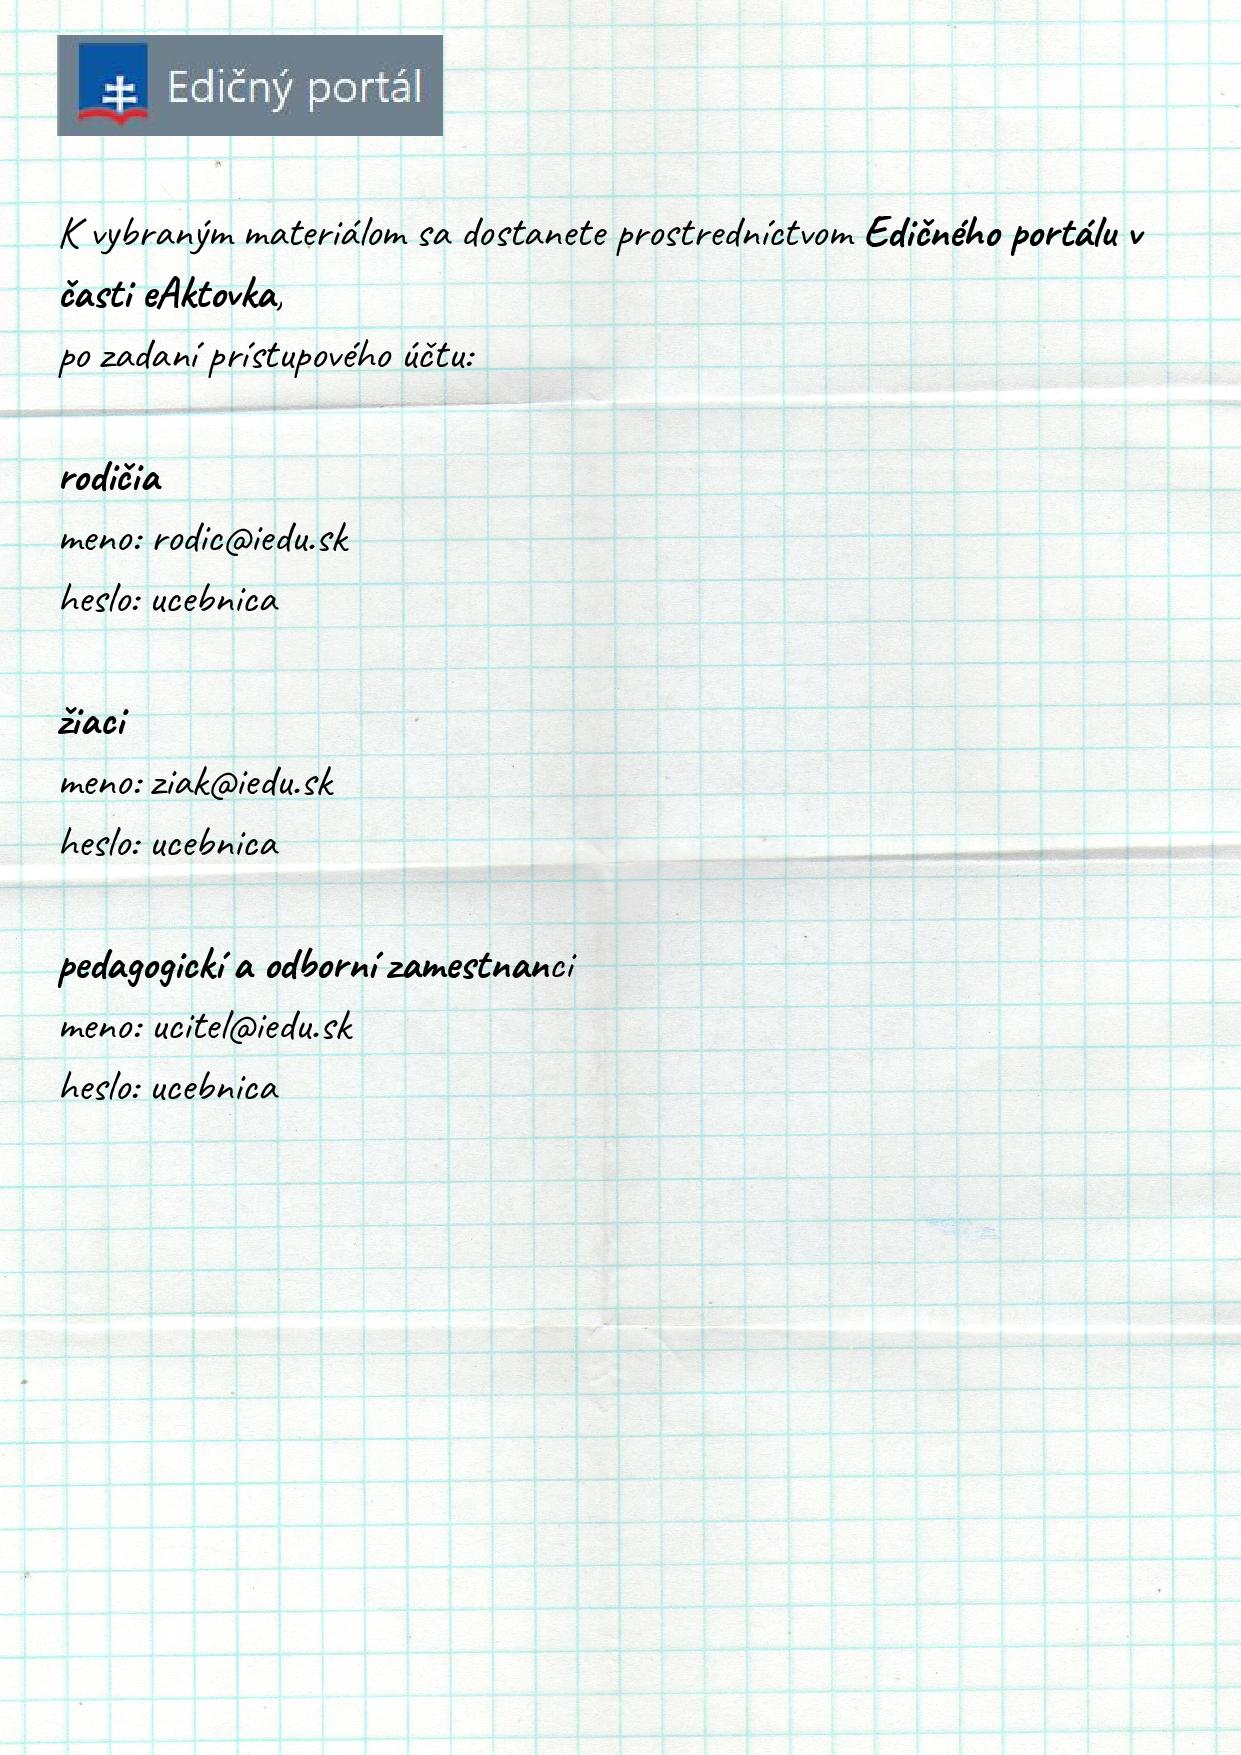 Edičný portál
K vybraným materiálom sa dostanete prostredníctvom Edičného portálu v
časti eAktovka,
po zadaní prístupového účtu:
rodičia
meno: rodic@iedu.sk
heslo: ucebnica
žiaci
meno: ziak@iedu.sk
heslo: ucebnica
pedagogickí a odborní zamestnanci
meno: ucitel@iedu.sk
heslo: ucebnica